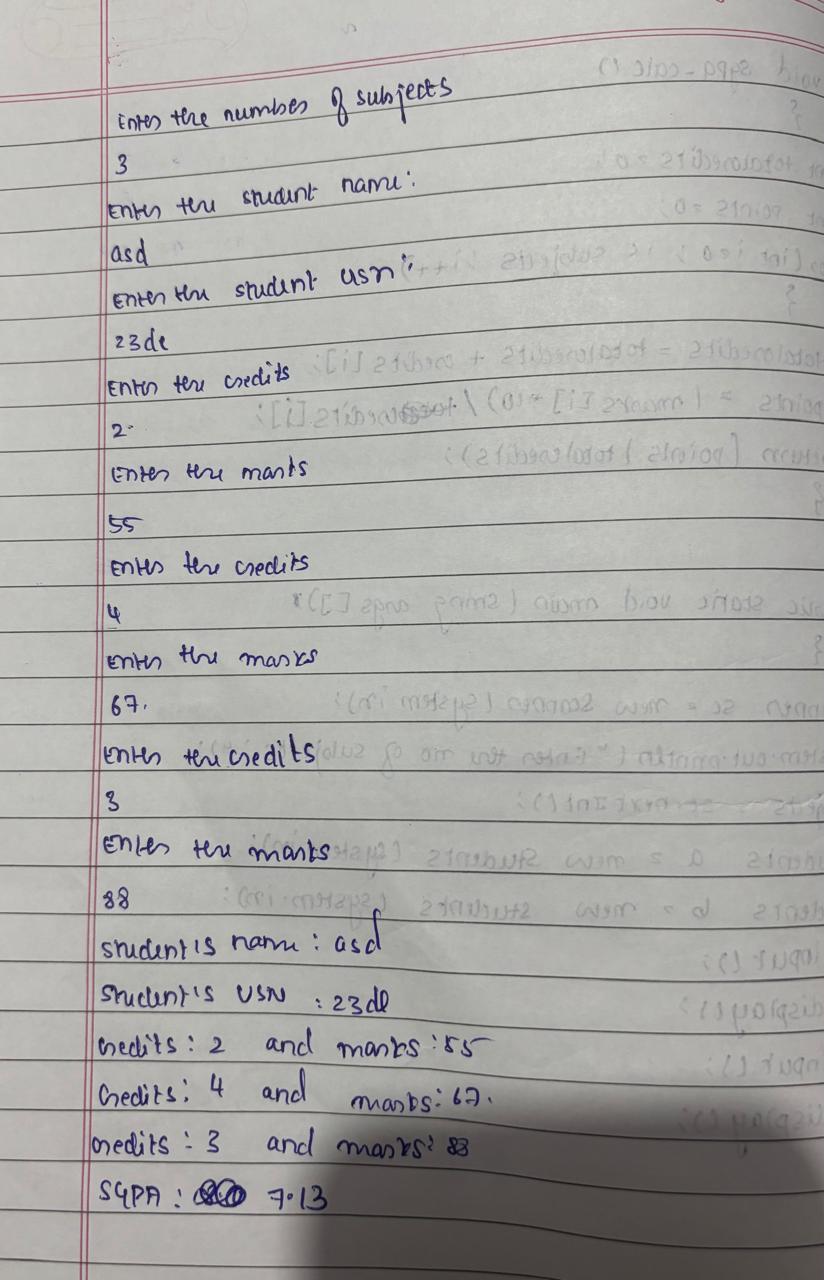 Enter the number of subjects
3
Enter the student name:
asd
Enter the student usn:
23de
Enter the credits
2
Enter the marks
55
Enter the credits
4
Enter the marks
67.
Enter the credits
3
Enter the marks
88
student's name : asd
Student's USN : 23de
Credits : 2 and marks : 55
Credits : 4 and marks : 67.
Credits : 3 and marks : 88
SGPA : 7.13